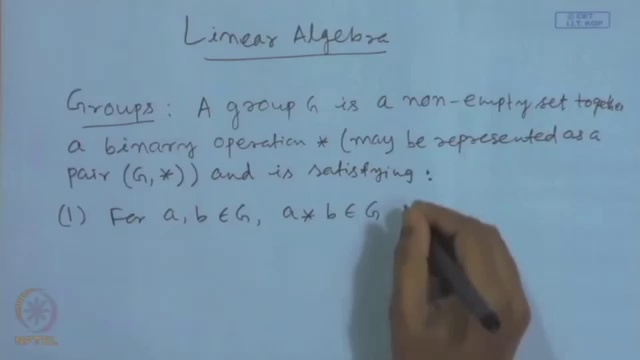 © CET
I.I.T. KGP
Linear Algebra
Groups : A group G is a non-empty set together
a binary operation * (may be represented as a
pair (G, *)) and is satisfying :
(1) For a, b ∈ G, a * b ∈ G
NPTEL